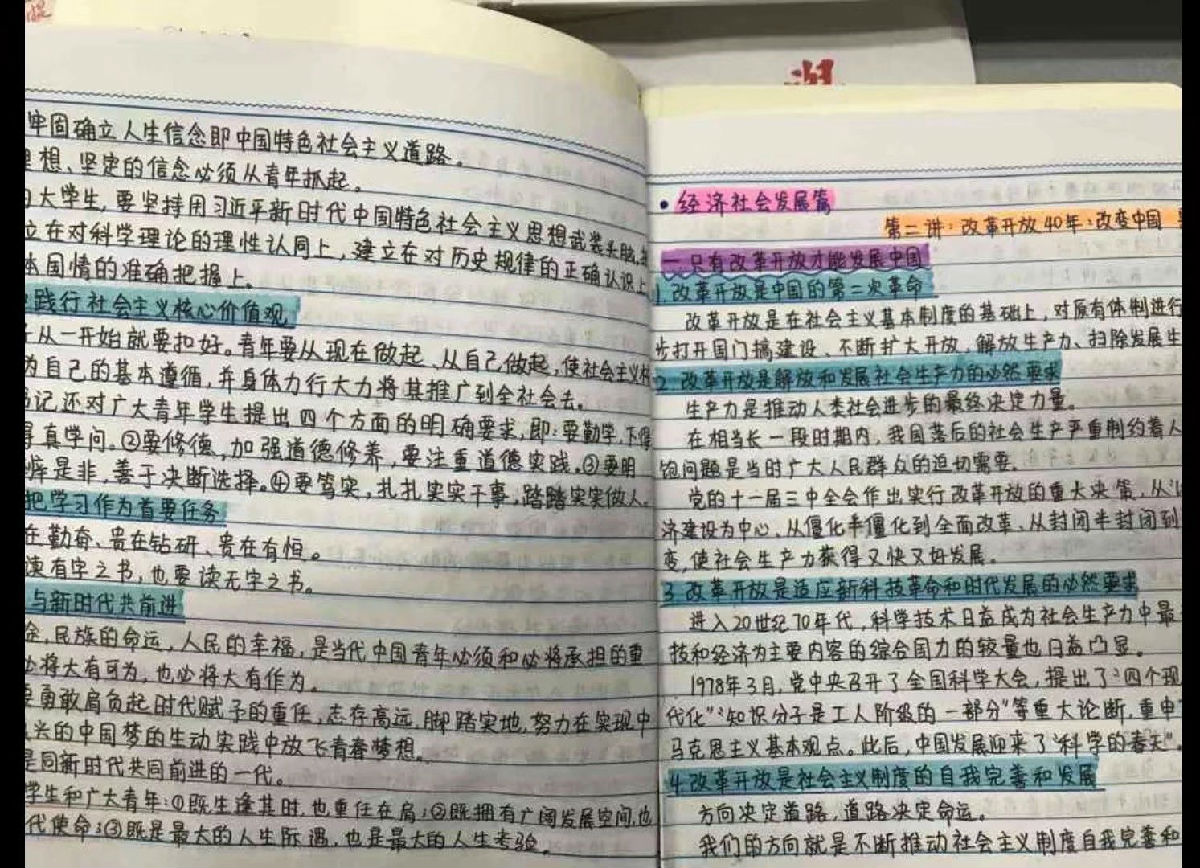 牢固确立人生信念即中国特色社会主义道路。
想、坚定的信念必须从青年抓起。
大学生,要坚持用习近平新时代中国特色社会主义思想武装头脑,
立在对科学理论的理性认同上,建立在对历史规律的正确认识上
本国情的准确把握上。
践行社会主义核心价值观
从一开始就要扣好。青年要从现在做起、从自己做起,使社会主义核
为自己的基本遵循,并身体力行大力将其推广到全社会去。
记还对广大青年学生提出四个方面的明确要求,即:要勤学,下得
真学问。②要修德,加强道德修养,要注重道德实践。③要明
辨是非,善于决断选择。④要笃实,扎扎实实干事,踏踏实实做人。
把学习作为首要任务
在勤奋、贵在钻研、贵在有恒。
读有字之书,也要读无字之书。
与新时代共前进
命,民族的命运,人民的幸福,是当代中国青年必须和必将承担的重
必将大有可为,也必将大有作为。
要勇敢肩负起时代赋予的重任,志存高远,脚踏实地,努力在实现中
兴的中国梦的生动实践中放飞青春梦想。
是同新时代共同前进的一代。
学生和广大青年:①既生逢其时,也重任在肩;②既拥有广阔发展空间,也
代使命;③既是最大的人生际遇,也是最大的人生考验。
•经济社会发展篇
第二讲:改革开放40年:改变中国
一.只有改革开放才能发展中国
1.改革开放是中国的第二次革命
改革开放是在社会主义基本制度的基础上,对原有体制进行
步打开国门搞建设、不断扩大开放,解放生产力、扫除发展生
2.改革开放是解放和发展社会生产力的必然要求
生产力是推动人类社会进步的最终决定力量。
在相当长一段时期内,我国落后的社会生产严重制约着人
饱问题是当时广大人民群众的迫切需要.
党的十一届三中全会作出实行改革开放的重大决策,从以
济建设为中心、从僵化半僵化到全面改革、从封闭半封闭到
变,使社会生产力获得又快又好发展。
3.改革开放是适应新科技革命和时代发展的必然要求
进入20世纪70年代,科学技术日益成为社会生产力中最
技和经济为主要内容的综合国力的较量也日益凸显。
1978年3月,党中央召开了全国科学大会,提出了"四个现
代化""知识分子是工人阶级的一部分"等重大论断,重申
马克思主义基本观点。此后,中国发展迎来了"科学的春天"。
4.改革开放是社会主义制度的自我完善和发展
方向决定道路,道路决定命运。
我们的方向就是不断推动社会主义制度自我完善和